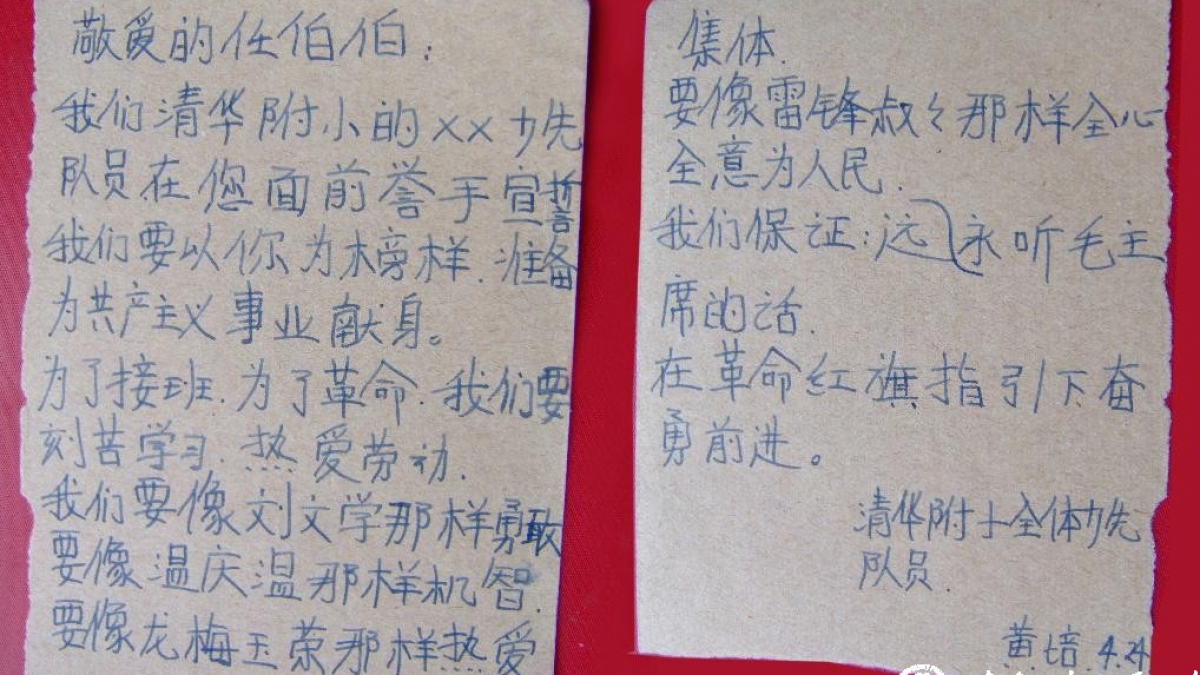 敬爱的任伯伯：
我们清华附小的××少先
队员在您面前誉手宣誓
我们要以你为榜样.准备
为共产主义事业献身。
为了接班.为了革命.我们要
刻苦学习.热爱劳动.
我们要像刘文学那样勇敢
要像温庆温那样机智.
要像龙梅玉荣那样热爱
集体.
要像雷锋叔々那样全心
全意为人民.
我们保证:远永听毛主
席的话.
在革命红旗指引下奋
勇前进。
清华附小全体少先
队员.
黄培 4.24